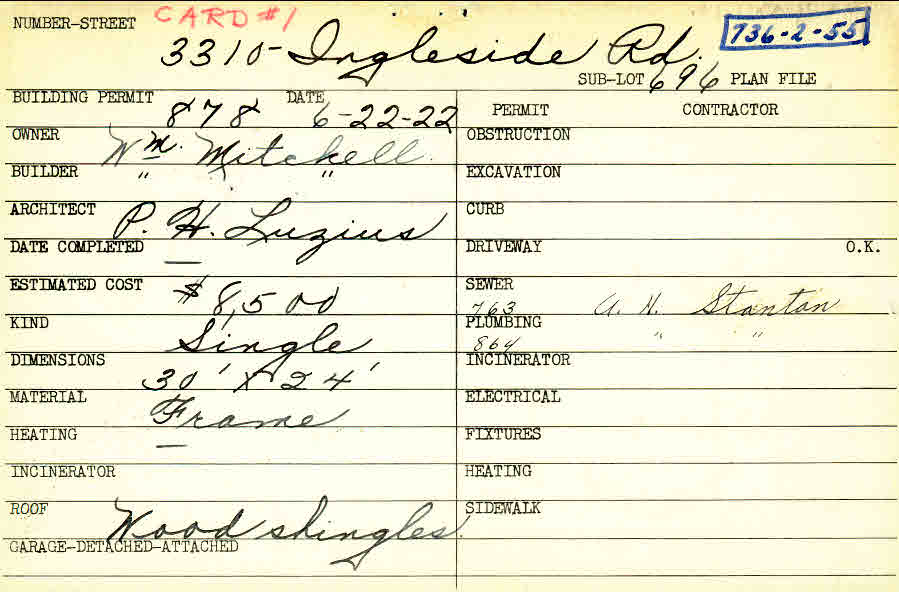 CARD #1
NUMBER-STREET 3310-Ingleside Rd. 736-2-55
SUB-LOT 696 PLAN FILE
BUILDING PERMIT 878 DATE 6-22-22
OWNER Wm. Mitchell
BUILDER " "
ARCHITECT P. H. Luzius
DATE COMPLETED —
ESTIMATED COST $8,500
KIND Single
DIMENSIONS 30' x 24'
MATERIAL Frame
HEATING —
INCINERATOR
ROOF Wood shingles
GARAGE-DETACHED-ATTACHED
PERMIT CONTRACTOR
OBSTRUCTION
EXCAVATION
CURB
DRIVEWAY O.K.
SEWER
763 A. H. Stanton
PLUMBING " "
864
INCINERATOR
ELECTRICAL
FIXTURES
HEATING
SIDEWALK